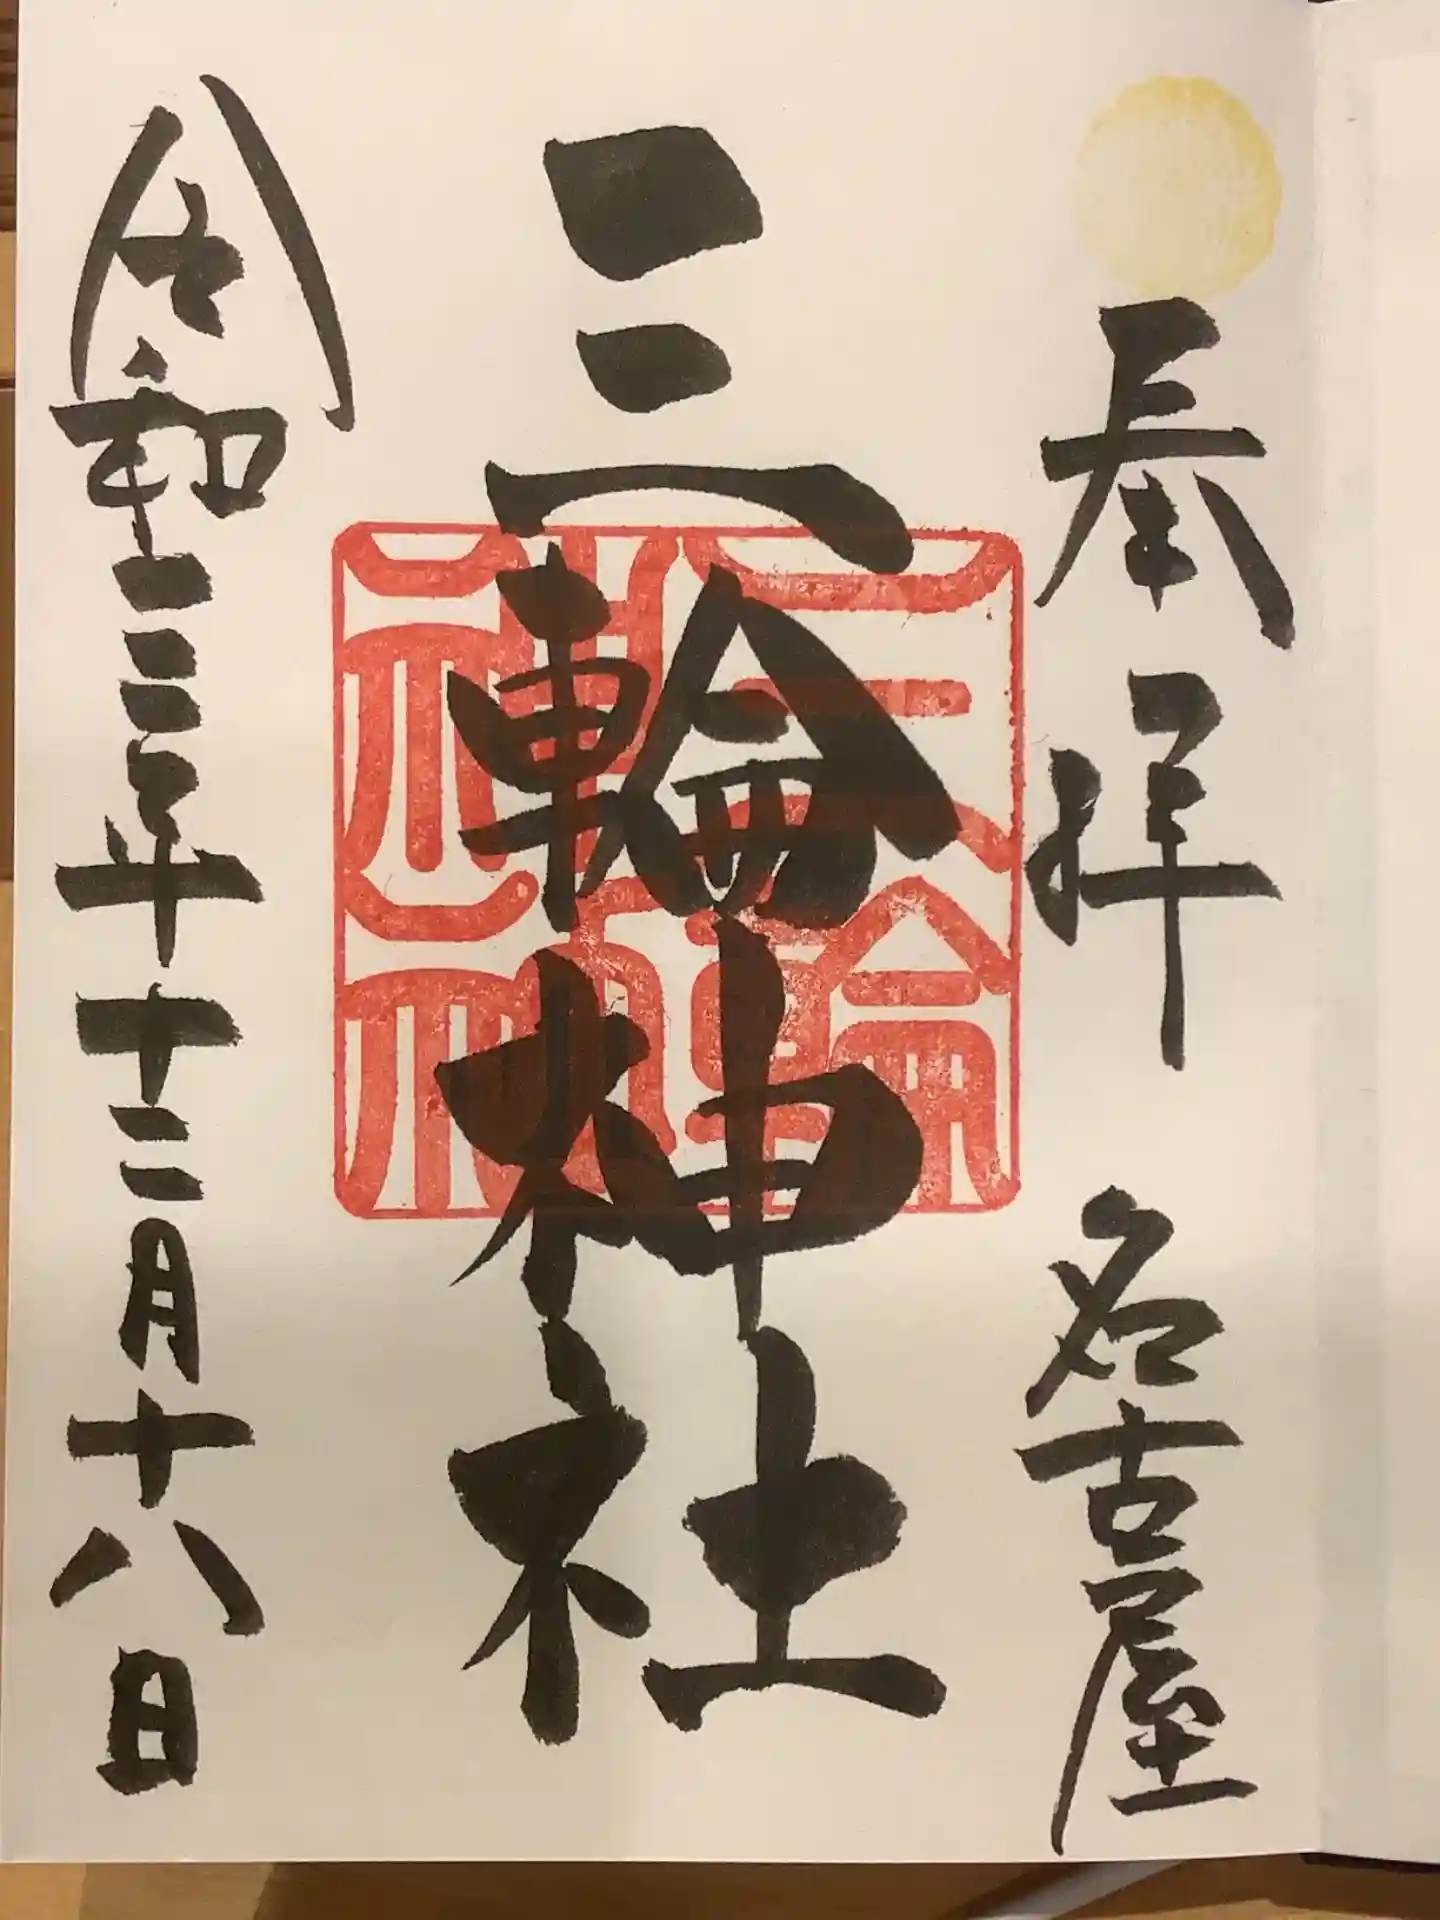 奉拝 名古屋
三輪神社
三輪神社
令和三年十二月十八日